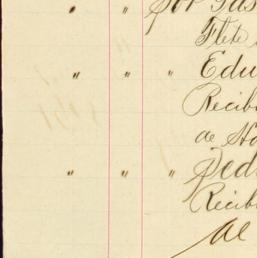 " " por Gas
Flete
" " " Edu
Recibo
de Ho
" " " Pedr
Recib
al